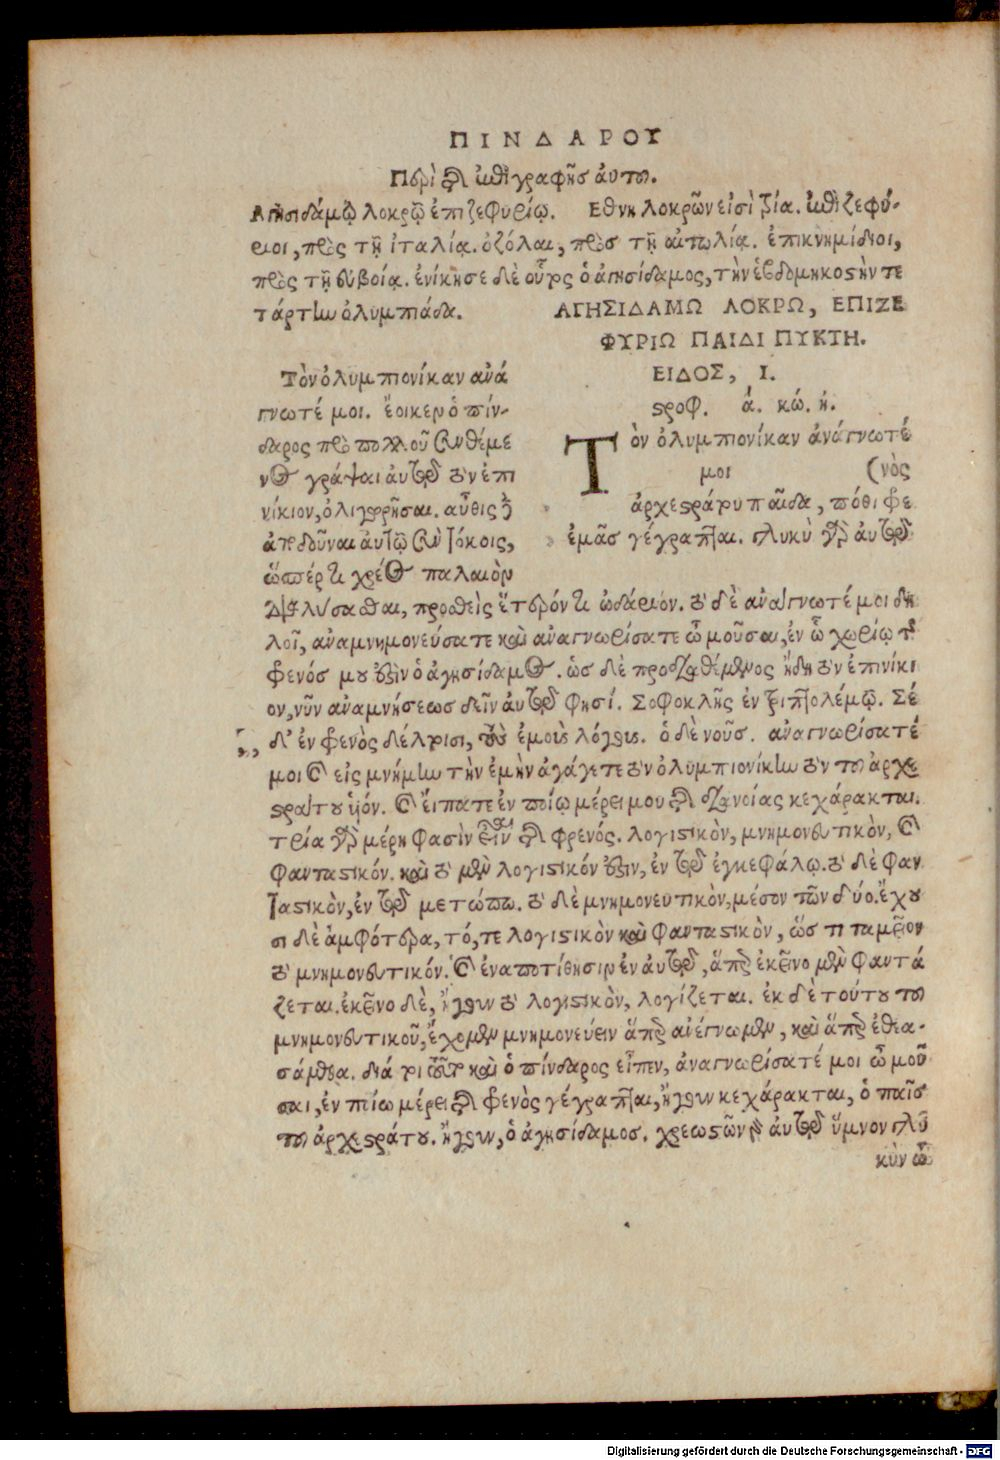 ΠΙΝΔΑΡΟΥ
Περὶ τῆς ἐπιγραφῆς αὐτοῦ.
Αγησιδάμῳ λοκρῷ ἐπιζεφυρίῳ. Εθνη λοκρῶν εἰσὶ τρία. ἐπιζεφύ-
ριοι, πρὸς τῇ ἰταλίᾳ. ὀζόλαι, πρὸς τῇ αἰτωλίᾳ. ἐπικνημίδιοι,
πρὸς τῇ εὐβοίᾳ. ἐνίκησε δὲ οὗτος ὁ ἀγησίδαμος, τὴν ἑβδομηκοστήν τε
τάρτην ὀλυμπιάδα.
ΑΓΗΣΙΔΑΜΩ ΛΟΚΡΩ, ΕΠΙΖΕ
ΦΥΡΙΩ ΠΑΙΔΙ ΠΥΚΤΗ.
ΕΙΔΟΣ, Ι.
στροφ. ά. κώ. ή.
Τὸν ὀλυμπιονίκαν ἀνάγνωτέ
μοι (νὸς
ἀρχεστράτου παῖδα, πόθι φρε
ἐμᾶς γέγραπται. γλυκὺ γὰρ αὐτῷ
Τὸν ὀλυμπιονίκαν ἀνά
γνωτέ μοι. ἔοικεν ὁ πίν-
δαρος πρὸ πολλοῦ συνθέμε
νος γράψαι αὐτῷ τὸν ἐπι
νίκιον, ὀλιγωρῆσαι. αὖθις δὲ
ἀποδοῦναι αὐτῷ σὺν τόκοις,
ὥσπέρ τι χρέος παλαιὸν
διαλύσασθαι, προσθεὶς ἕτερόν τι ᾠδάριον. τὸ δὲ ἀνάγνωτέ μοι δη
λοῖ, ἀναμνημονεύσατε καὶ ἀναγνωρίσατε ὦ μοῦσαι, ἐν ᾧ χωρίῳ τῆς
φρενός μου ἐστὶν ὁ ἀγησίδαμος. ὡς δὲ προδιαθέμενος ἤδη τὸν ἐπινίκι
ον, νῦν ἀναμνήσεως δεῖν αὐτῷ φησί. Σοφοκλῆς ἐν τριπτολέμῳ. Σέ
δ' ἐν φρενὸς δέλτοισι, τοὺς ἐμοὺς λόγους. ὁ δὲ νοῦς. ἀναγνωρίσατέ
μοι καὶ εἰς μνήμην τὴν ἐμὴν ἀγάγετε τὸν ὀλυμπιονίκην τὸν τοῦ ἀρχε
στράτου υἱόν. καὶ εἴπατε ἐν ποίῳ μέρει μου τῆς διανοίας κεχάρακται.
τρία γὰρ μέρη φασὶν εἶναι τῆς φρενός. λογιστικὸν, μνημονευτικὸν, καὶ
φανταστικόν. καὶ τὸ μὲν λογιστικόν ἐστιν, ἐν τῷ ἐγκεφάλῳ. τὸ δὲ φαν
ταστικὸν, ἐν τῷ μετώπῳ. τὸ δὲ μνημονευτικὸν, μέσον τῶν δύο. ἔχου
σι δὲ ἀμφότερα, τό, τε λογιστικὸν καὶ φανταστικὸν, ὥς τι ταμεῖον
τὸ μνημονευτικόν. καὶ ἐναποτίθησιν ἐν αὐτῷ, ἅπερ ἐκεῖνο μὲν φαντά
ζεται. ἐκεῖνο δὲ, ἤγουν τὸ λογιστικὸν, λογίζεται. ἐκ δὲ τούτου τοῦ
μνημονευτικοῦ, ἔχομεν μνημονεύειν ἅπερ ἀνέγνωμεν, καὶ ἅπερ ἐθεα-
σάμεθα. διά τοι τοῦτο καὶ ὁ πίνδαρος εἶπεν, ἀναγνωρίσατέ μοι ὦ μοῦ
σαι, ἐν ποίῳ μέρει τῆς φρενὸς γέγραπται, ἤγουν κεχάρακται, ὁ παῖς
τοῦ ἀρχεστράτου. ἤγουν, ὁ ἀγησίδαμος. χρεωστῶν γὰρ αὐτῷ ὕμνον γλυ
κὺν
Digitalisierung gefördert durch die Deutsche Forschungsgemeinschaft - DFG